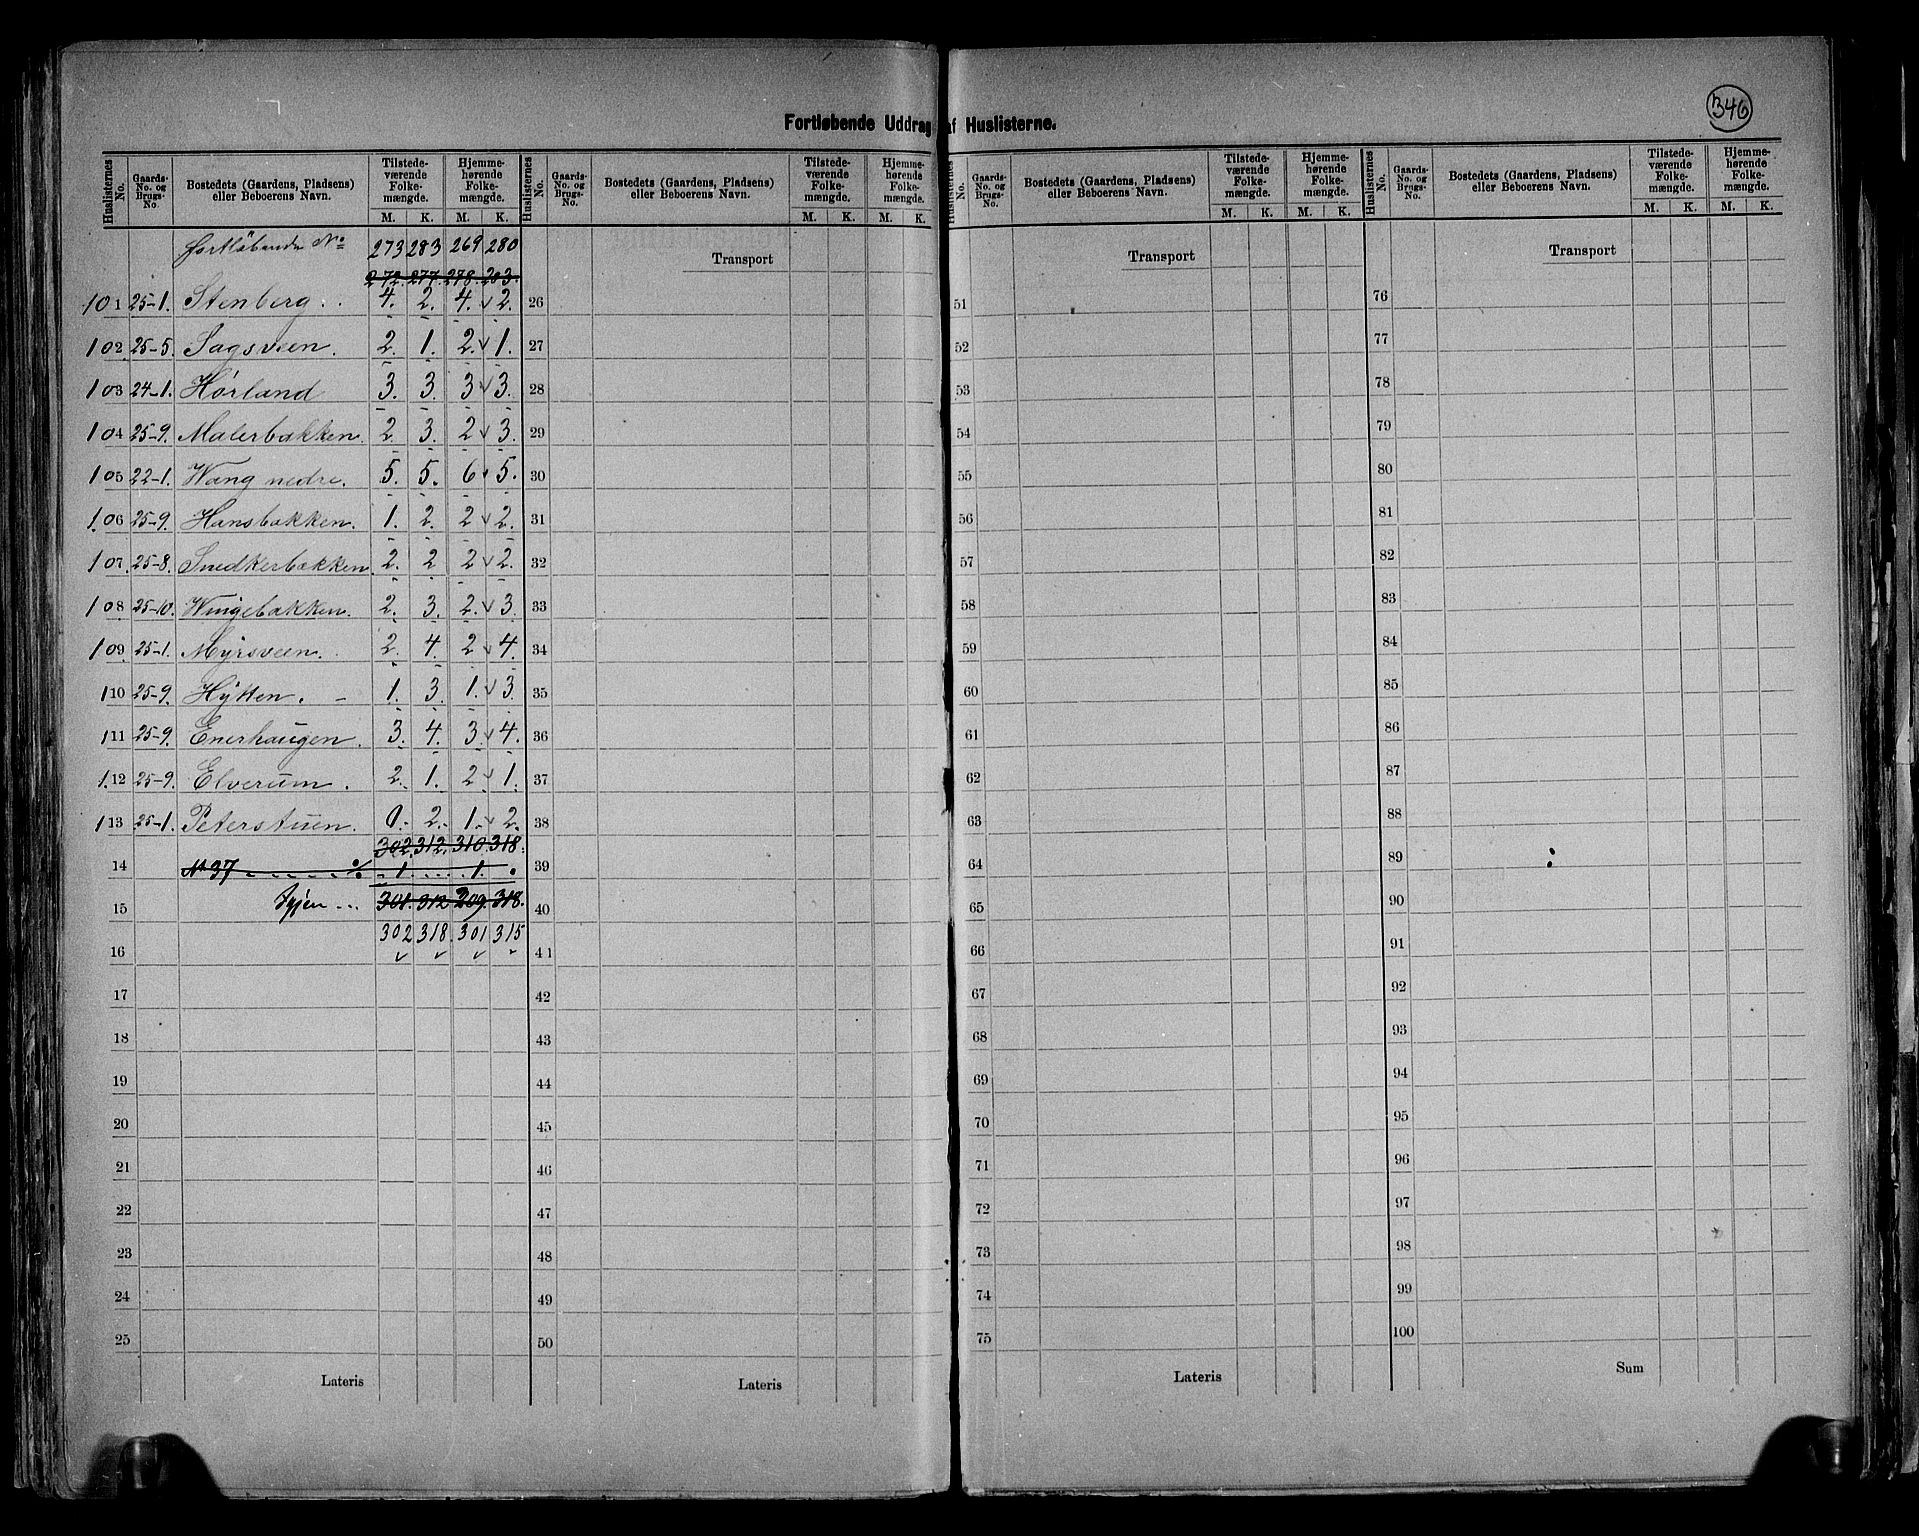 346
Fortløbende Uddrag af Huslisterne.
Huslisternes No. Gaards-No. og Brugs-No. Bostedets (Gaardens, Pladsens) eller Beboerens Navn. Tilstedeværende Folkemængde. M. K. Hjemmehørende Folkemængde. M. K.
Huslisternes No. Gaards-No. og Brugs-No. Bostedets (Gaardens, Pladsens) eller Beboerens Navn. Tilstedeværende Folkemængde. M. K. Hjemmehørende Folkemængde. M. K.
Huslisternes No. Gaards-No. og Brugs-No. Bostedets (Gaardens, Pladsens) eller Beboerens Navn. Tilstedeværende Folkemængde. M. K. Hjemmehørende Folkemængde. M. K.
Huslisternes No. Gaards-No. og Brugs-No. Bostedets (Gaardens, Pladsens) eller Beboerens Navn. Tilstedeværende Folkemængde. M. K. Hjemmehørende Folkemængde. M. K.
fortløbende No 273 283 269 280
272. 277. 278.
101 25-1. Stenberg . . 4. 2. 4. 2.
102 25-5. Sagsveen. 2. 1. 2. 1.
103 24-1. Hørland 3. 3. 3 3.
104 25-9. Malerbakken. 2. 3. 2 3.
105 22-1. Wang nedre. 5. 5. 6 5.
106 25-9. Hansbakken. 1. 2. 2 2.
107. 25-8. Snedkerbakken. 2. 2 2 2.
108 25-10. Wingebakken. 2. 3. 2. 3.
109 25-1. Myrsveen. 2. 4. 2 4.
110 25-9. Hytten. - 1. 3. 1. 3.
111 25-9. Enerhaugen. 3. 4. 3. 4.
112 25-9. Elverum. 2. 1. 2 1.
113 25-1. Peterstuen. 0. 2. 1. 2.
302. 312. 310. 318.
14 No 37 . . . . . % 1. . . . . 1.
15 Igjen ... 301. 312 209. 318.
302 318. 301 315
16
17
18
19
20
21
22
23
24
25
Lateris
Transport
26
27
28
29
30
31
32
33
34
35
36
37
38
39
40
41
42
43
44
45
46
47
48
49
50
Lateris
Transport
51
52
53
54
55
56
57
58
59
60
61
62
63
64
65
66
67
68
69
70
71
72
73
74
75
Lateris
Transport
76
77
78
79
80
81
82
83
84
85
86
87
88
89
90
91
92
93
94
95
96
97
98
99
100
Sum